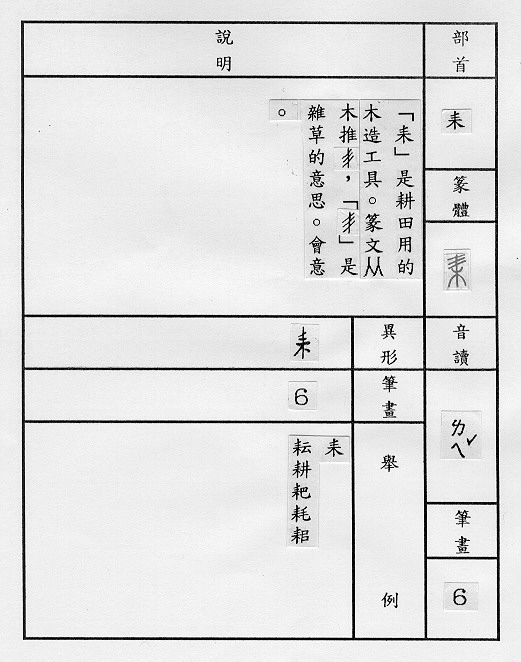 部首
耒
篆體
音讀
ㄌㄟˇ
筆畫
6
說明
「耒」是耕田用的
木造工具。篆文从
木推丰,「丰」是
雜草的意思。會意
。
異形
耒
筆畫
6
舉例
耒
耘耕耙耗耜